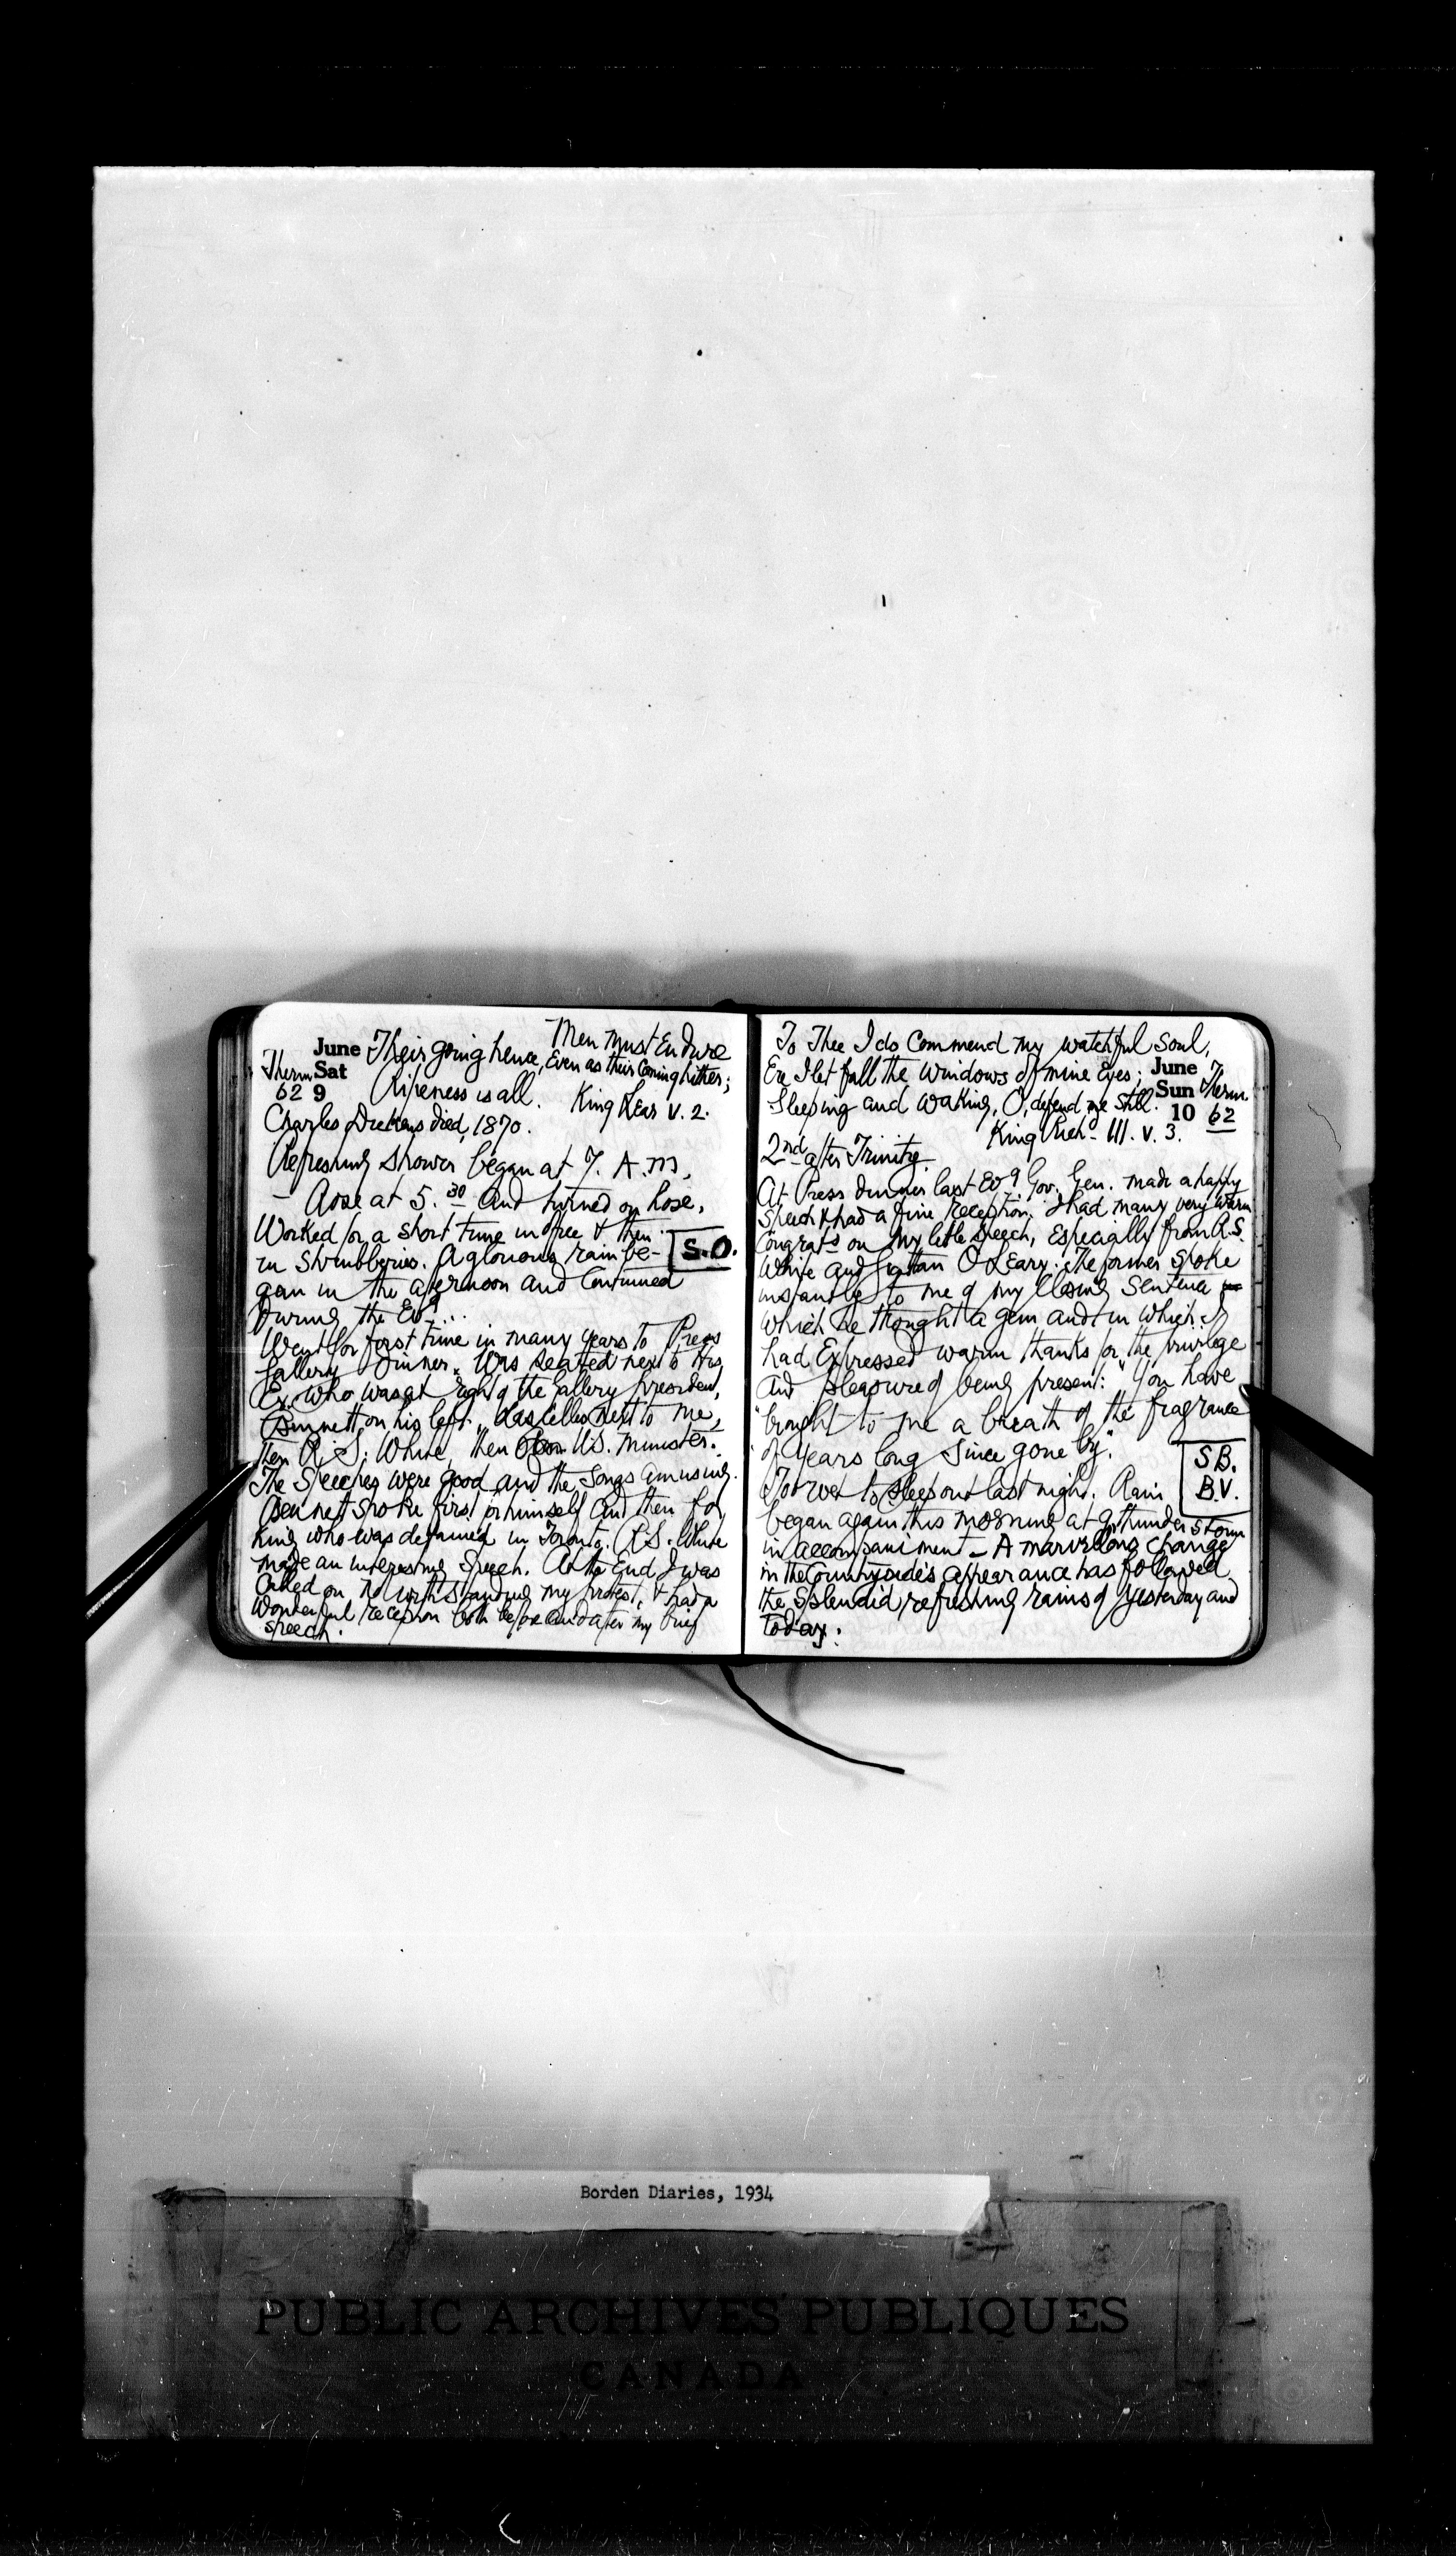 Men must Endure
June Their going hence, Even as their Coming hither;
Therm Sat
62 9 Ripeness is all. King Lear V. 2.
Charles Dickens died, 1870.
Refreshing shower began at 7. A.M.
— Rose at 5.30 and turned on hose.
Worked for a short time in office & then
in Shrubberies. A glorious rain be-
S.O.
gan in the afternoon and Continued
during the Evg...
Went for first time in many years to Press
Gallery Dinner. Was seated next to His
Ex. who was at right of the Gallery President,
Bennett on his left. Lascelles next to me,
then R. S. White, then U.S. Minister.
The Speeches were good and the Songs amusing.
Bennett spoke first for himself and then for
King who was detained in Toronto. R.S. White
made an interesting Speech. At the End I was
Called on, notwithstanding my protest, & had a
Wonderful reception both before and after my brief
speech.
To Thee I do Commend my watchful Soul,
Ere I let fall the windows of mine Eyes;
June
Sun Therm
Sleeping and Waking, O, defend me Still.
10 62
King Rich. III. V. 3.
2nd after Trinity.
At Press dinner last Evg Gov. Gen. made a happy
Speech & had a fine reception. I had many very warm
Congrats on my little Speech, Especially from R.S.
White and Grattan O'Leary. The former spoke
instantly to me of my Closing Sentence
which he thought a gem and in which I
had Expressed warm thanks for the privilege
and pleasure of being present: "You have
"brought to me a breath of the fragrance
"of Years long Since gone by".
S.B.
B.V.
Too wet to sleep out last night. Rain
began again this morning at 9, thunder storm
in accompaniment — A marvelous Change
in the Countryside's appearance has followed
the Splendid refreshing rains of Yesterday and
today.
Borden Diaries, 1934
PUBLIC ARCHIVES PUBLIQUES
CANADA